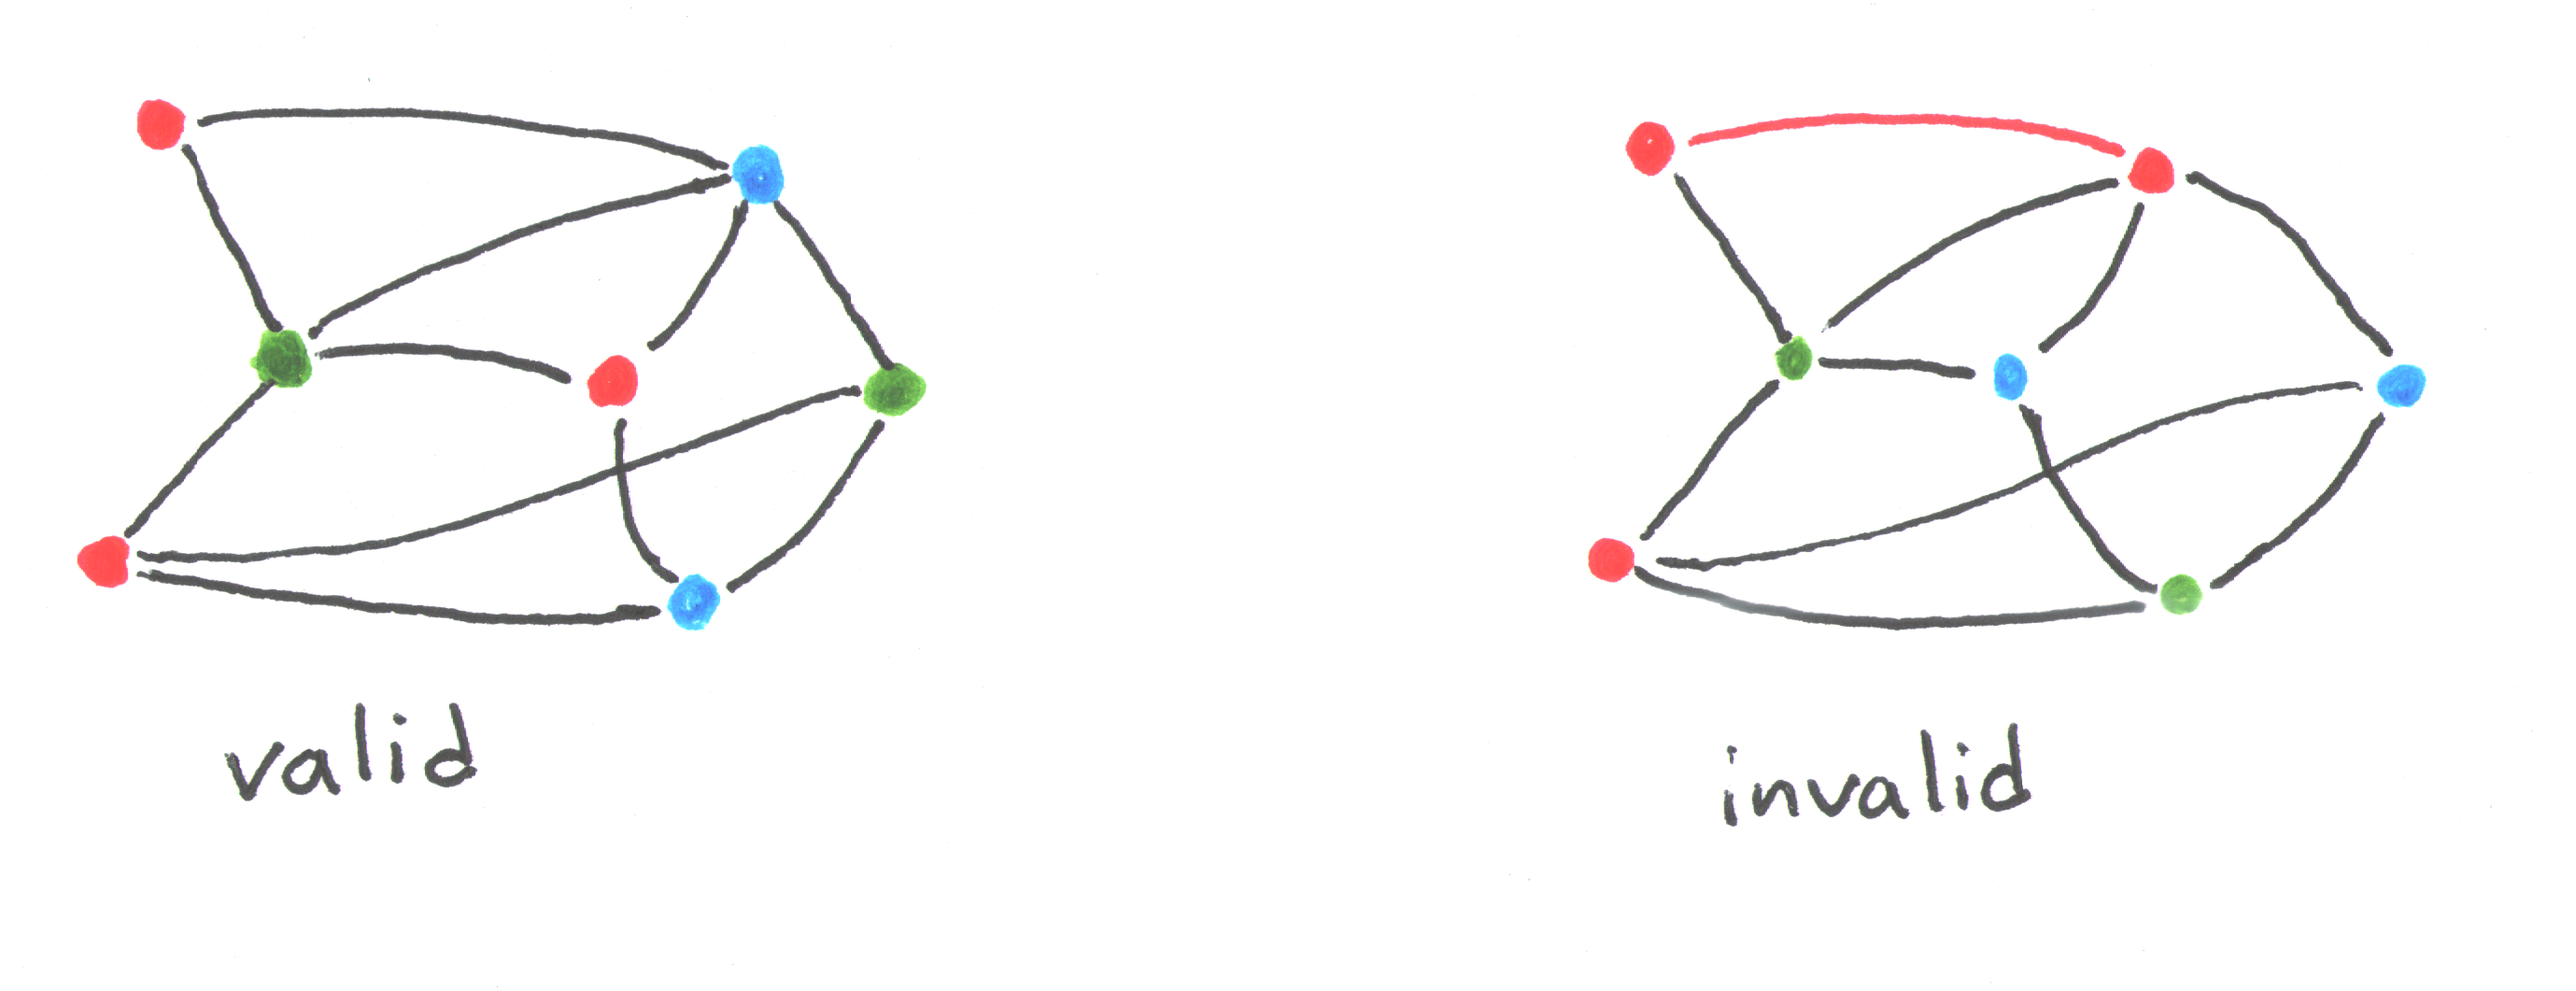 valid
invalid